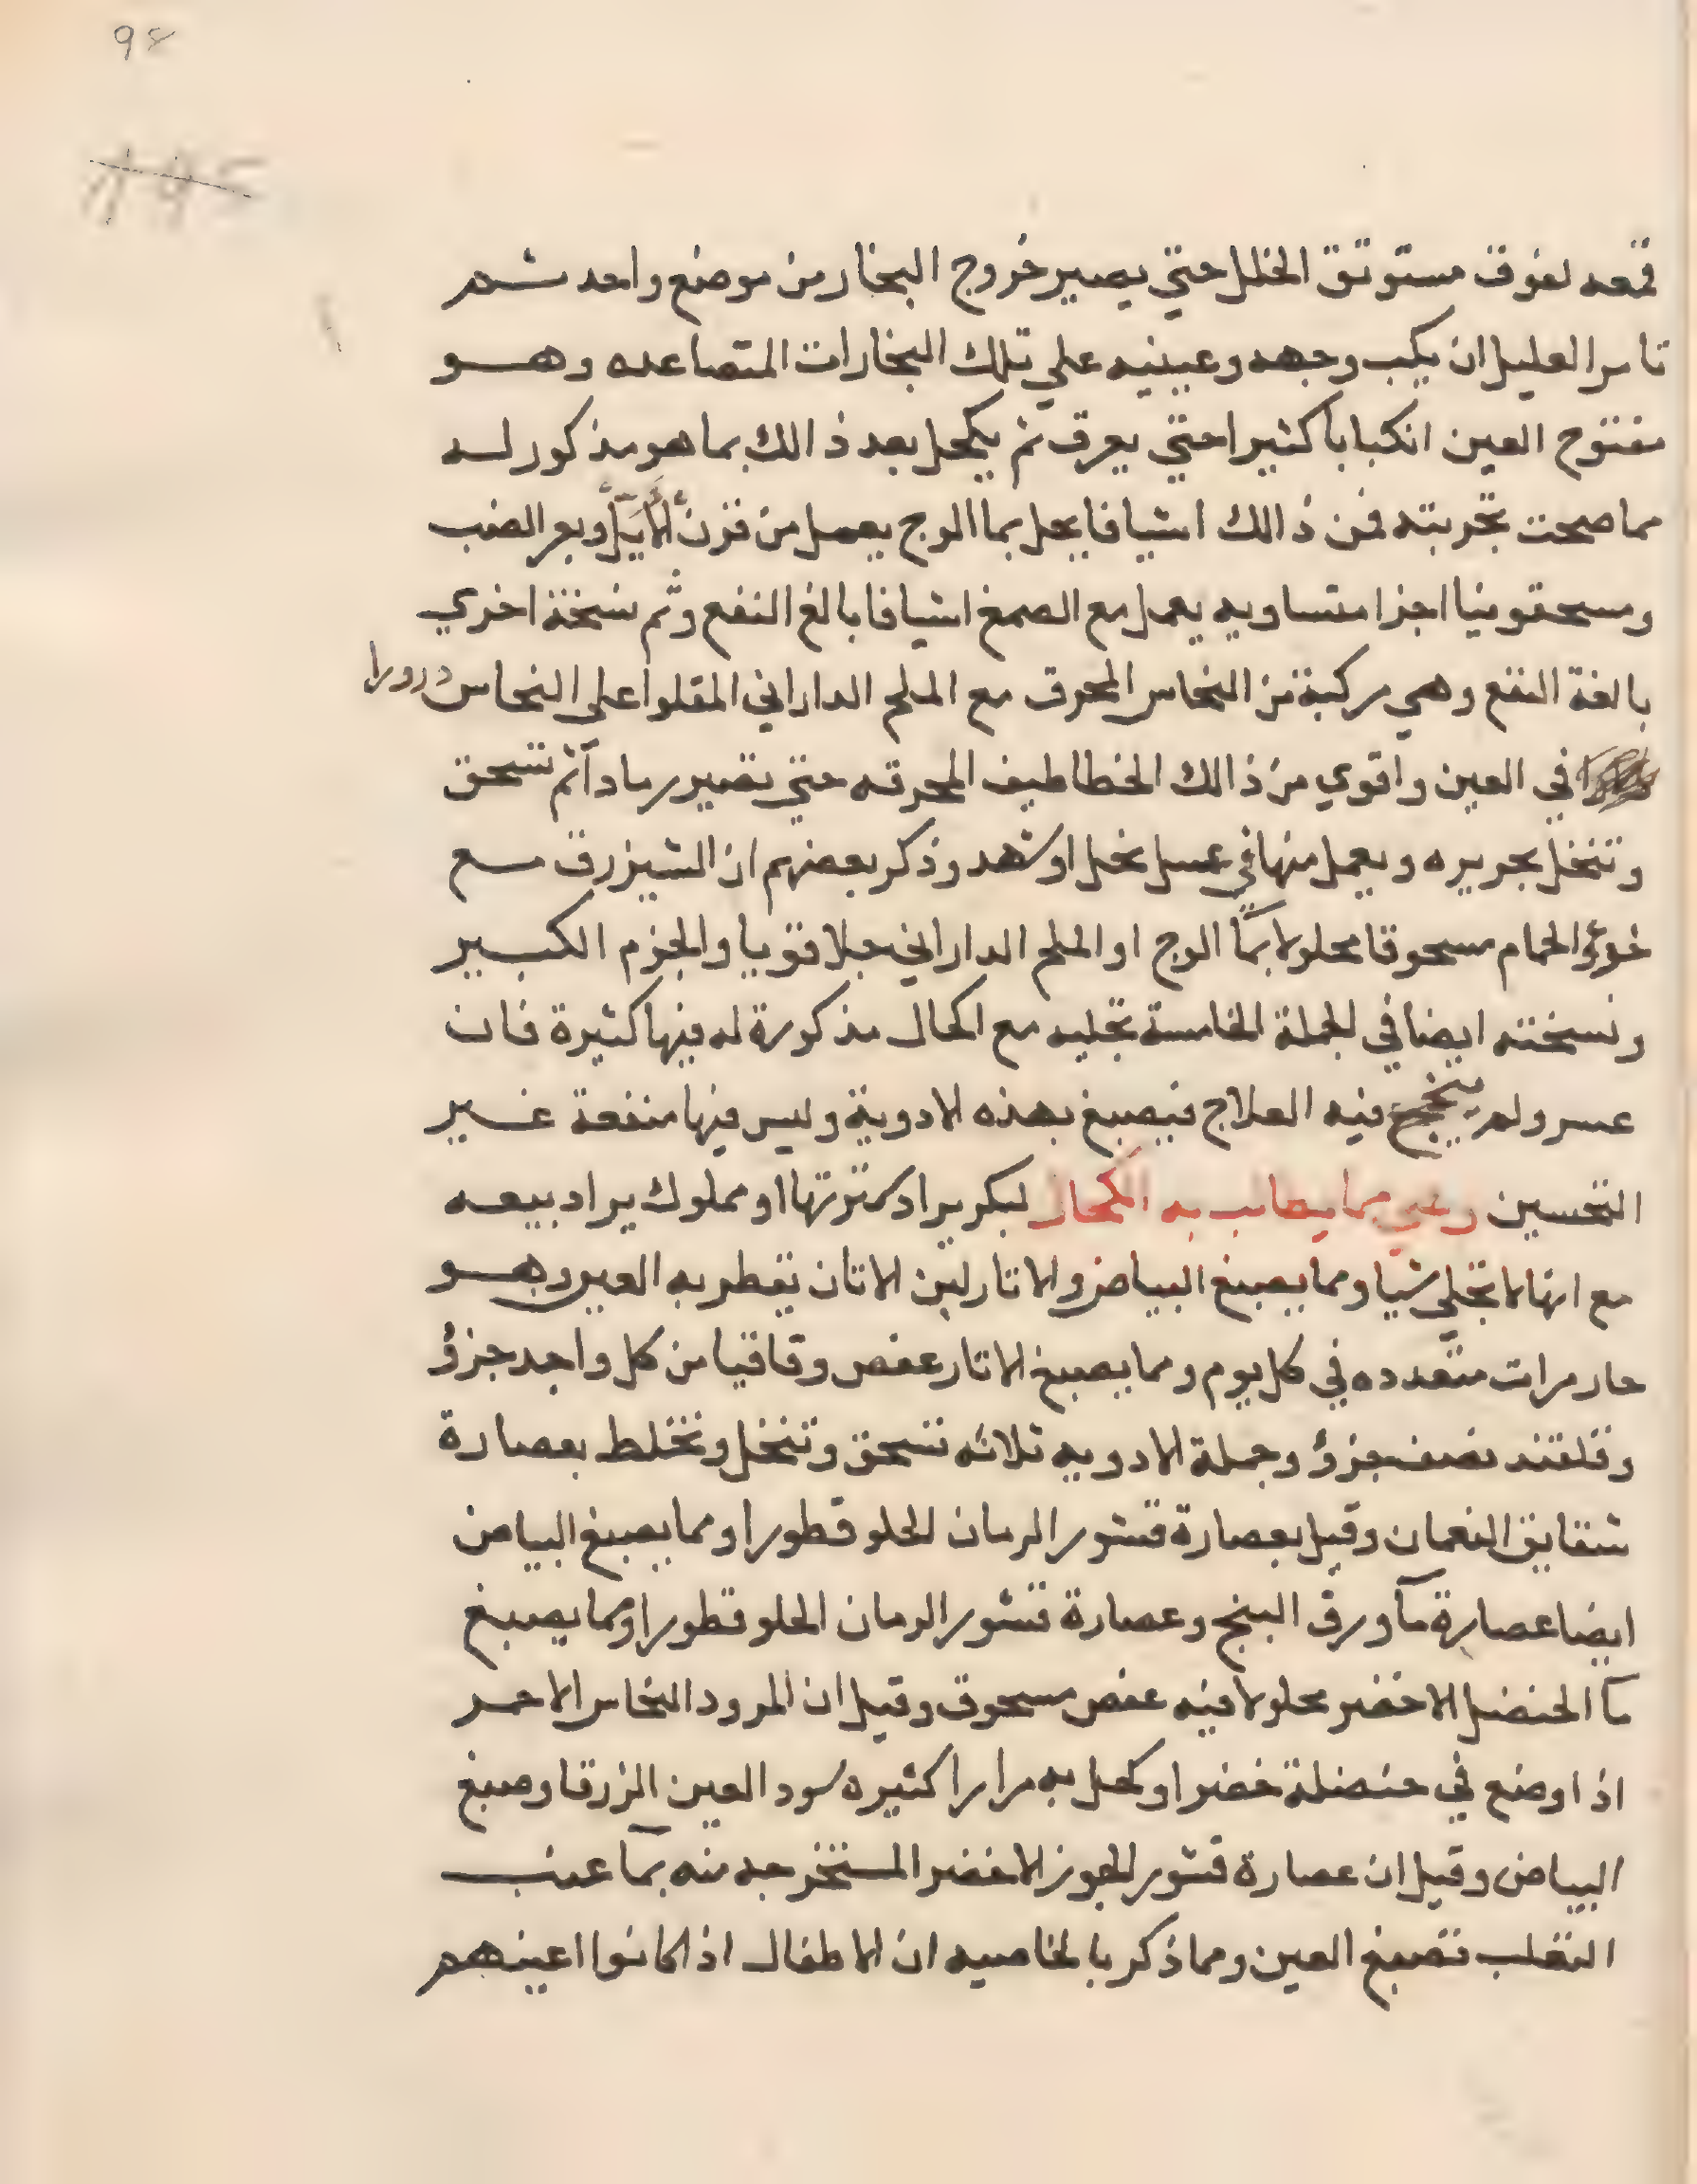 98
قمعه لفوق مستوثق الخلل حتي يصير خروج البخار من موضع واحد ثم
تامر العليل ان يكب وجهه وعينيه علي تلك البخارات المتصاعده وهو
مفتوح العين انكبابا كثيرا حتي يعرق ثم يكحل بعد ذالك بما هو مذكور له
مما صحت تجربته فمن ذالك اشيافا يحل بما الوج يعمل من قرن الأيَّل وبعر الضب
ومسحقونيا اجزا متساويه يعمل مع الصمغ اشيافا بالغ النفع وثم نسخة اخري
بالغة النفع وهي مركبة من النحاس المحرق مع الملح الداراني المقلوا علي النحاس درورا
في العين واقوي من ذالك الخطاطيف المحرقه حتي تصير رمادآ ثم تسحق
وتنخل بحريره ويعمل منها في عسل نحل او شهد وذكر بعضهم ان الشيزرق مع
خرؤ الحمام مسحوقا محلولا بمآ الوج او الملح الداراني جلا قويا والجزم الكبير
ونسخته ايضا في الجملة الخامسة تجليه مع اكحال مذكورة له فيها كثيرة فان
عسر ولم ينجح فيه العلاج فيصبغ بهذه الادوية وليس فيها منفعة غير
التحسين وهي مما يطالب به الكحال لبكر يراد كثرتها او مملوك يراد بيعه
مع انها لا تجلي شيا ومما يصبغ البياض والاثار لبن الاتان تقطر به العين وهو
حار مرات متعدده في كل يوم ومما يصبغ الاثار عفص وقاقيا من كل واحد جزؤ
وقلقند نصف جزؤ وجملة الادويه ثلاثه تسحق وتنخل وتخلط بعصارة
شقايق النعمان وقيل بعصارة قشور الرمان الحلو قطورا ومما يصبغ البياض
ايضا عصارة مآ ورق البنج وعصارة قشور الرمان الحلو قطورا ومما يصبغ
مآ الحنضل الاخضر محلولا فيه عفص مسحوق وقيل ان المرود النحاس الاحمر
اذا وضع في حنضلة خضرا وكحل به مرارا كثيره سود العين الزرقا وصبغ
البياض وقيل ان عصارة قشور الجوز الاخضر المستخرجه منه بمآ عنب
الثعلب تصبغ العين ومما ذكر بالخاصيه ان الاطفال اذا كانوا اعينهم